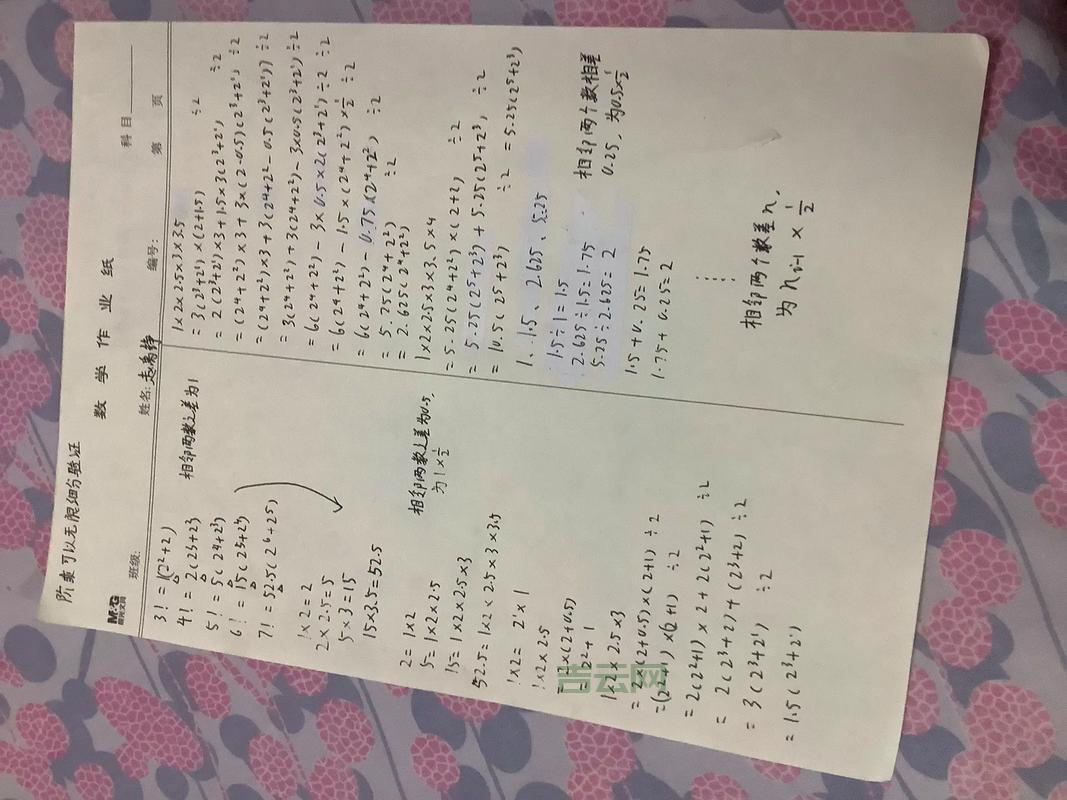 阶乘可以无限细分验证
M&G
晨光文具
数 学 作 业 纸
科目
班级:
姓名:
编号:
第 页
3! = 1(2²+2)
4! = 2(2³+2²)
5! = 5(2⁴+2³)
6! = 15(2⁵+2⁴)
7! = 52.5(2⁶+2⁵)
相邻两数之差为1
1×2=2
2×2.5=5
5×3=15
15×3.5=52.5
2=1×2
5=1×2×2.5
15=1×2×2.5×3
52.5=1×2×2.5×3×3.5
相邻两数之差为0.5,
为1×½
1×2= 2¹×1
1×2×2.5
=2×(2+0.5)
=2²+1
1×2×2.5×3
=2×(2+0.5)×(2+1)÷2
=(2²+1)×(2+1) ÷2
=2(2²+1)×2+2(2²+1) ÷2
=2(2³+2)+(2³+2)÷2
=3(2³+2¹) ÷2
=1.5(2³+2¹)
1×2×2.5×3×3.5
=3(2³+2¹)×(2+1.5) ÷2
=2(2³+2¹)×3+1.5×3(2³+2¹) ÷2
=(2⁴+2²)×3+3×(2-0.5)(2³+2¹) ÷2
=(2⁴+2²)×3+3(2⁴+2²-0.5(2³+2¹)) ÷2
=3(2⁴+2²)+3(2⁴+2²)-3×0.5(2³+2¹)÷2
=6(2⁴+2²)-3×0.5×2(2³+2¹)÷2÷2
=6(2⁴+2²)-1.5×(2⁴+2²)×½÷2
=6(2⁴+2²)-0.75(2⁴+2²) ÷2
=5.25(2⁴+2²) ÷2
=2.625(2⁴+2²)
1×2×2.5×3×3.5×4
=5.25(2⁴+2²)×(2+2) ÷2
=5.25(2⁵+2³)+5.25(2⁵+2³) ÷2
=10.5(2⁵+2³) ÷2 =5.25(2⁵+2³)
1、1.5、2.625、5.25
1.5÷1=1.5
2.625÷1.5=1.75
5.25÷2.625=2
1.5+0.25=1.75
1.75+0.25=2
相邻两个数相差
0.25,为0.5×½
⋮
相邻两个数差n,
为nᵢ₋₁×½
吉云网